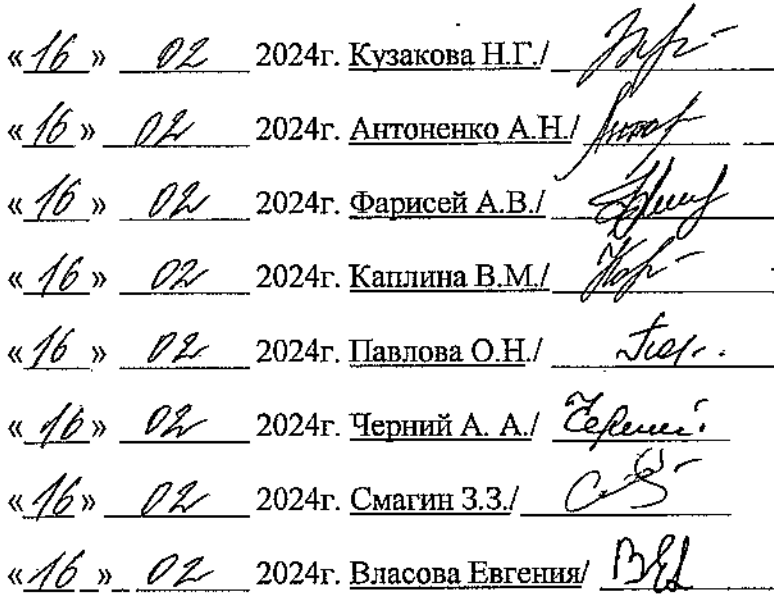 «16» 02 2024г. Кузакова Н.Г./
«16» 02 2024г. Антоненко А.Н./
«16» 02 2024г. Фарисей А.В./
«16» 02 2024г. Каплина В.М./
«16» 02 2024г. Павлова О.Н./
«16» 02 2024г. Черний А. А./
«16» 02 2024г. Смагин З.З./
«16» 02 2024г. Власова Евгения/